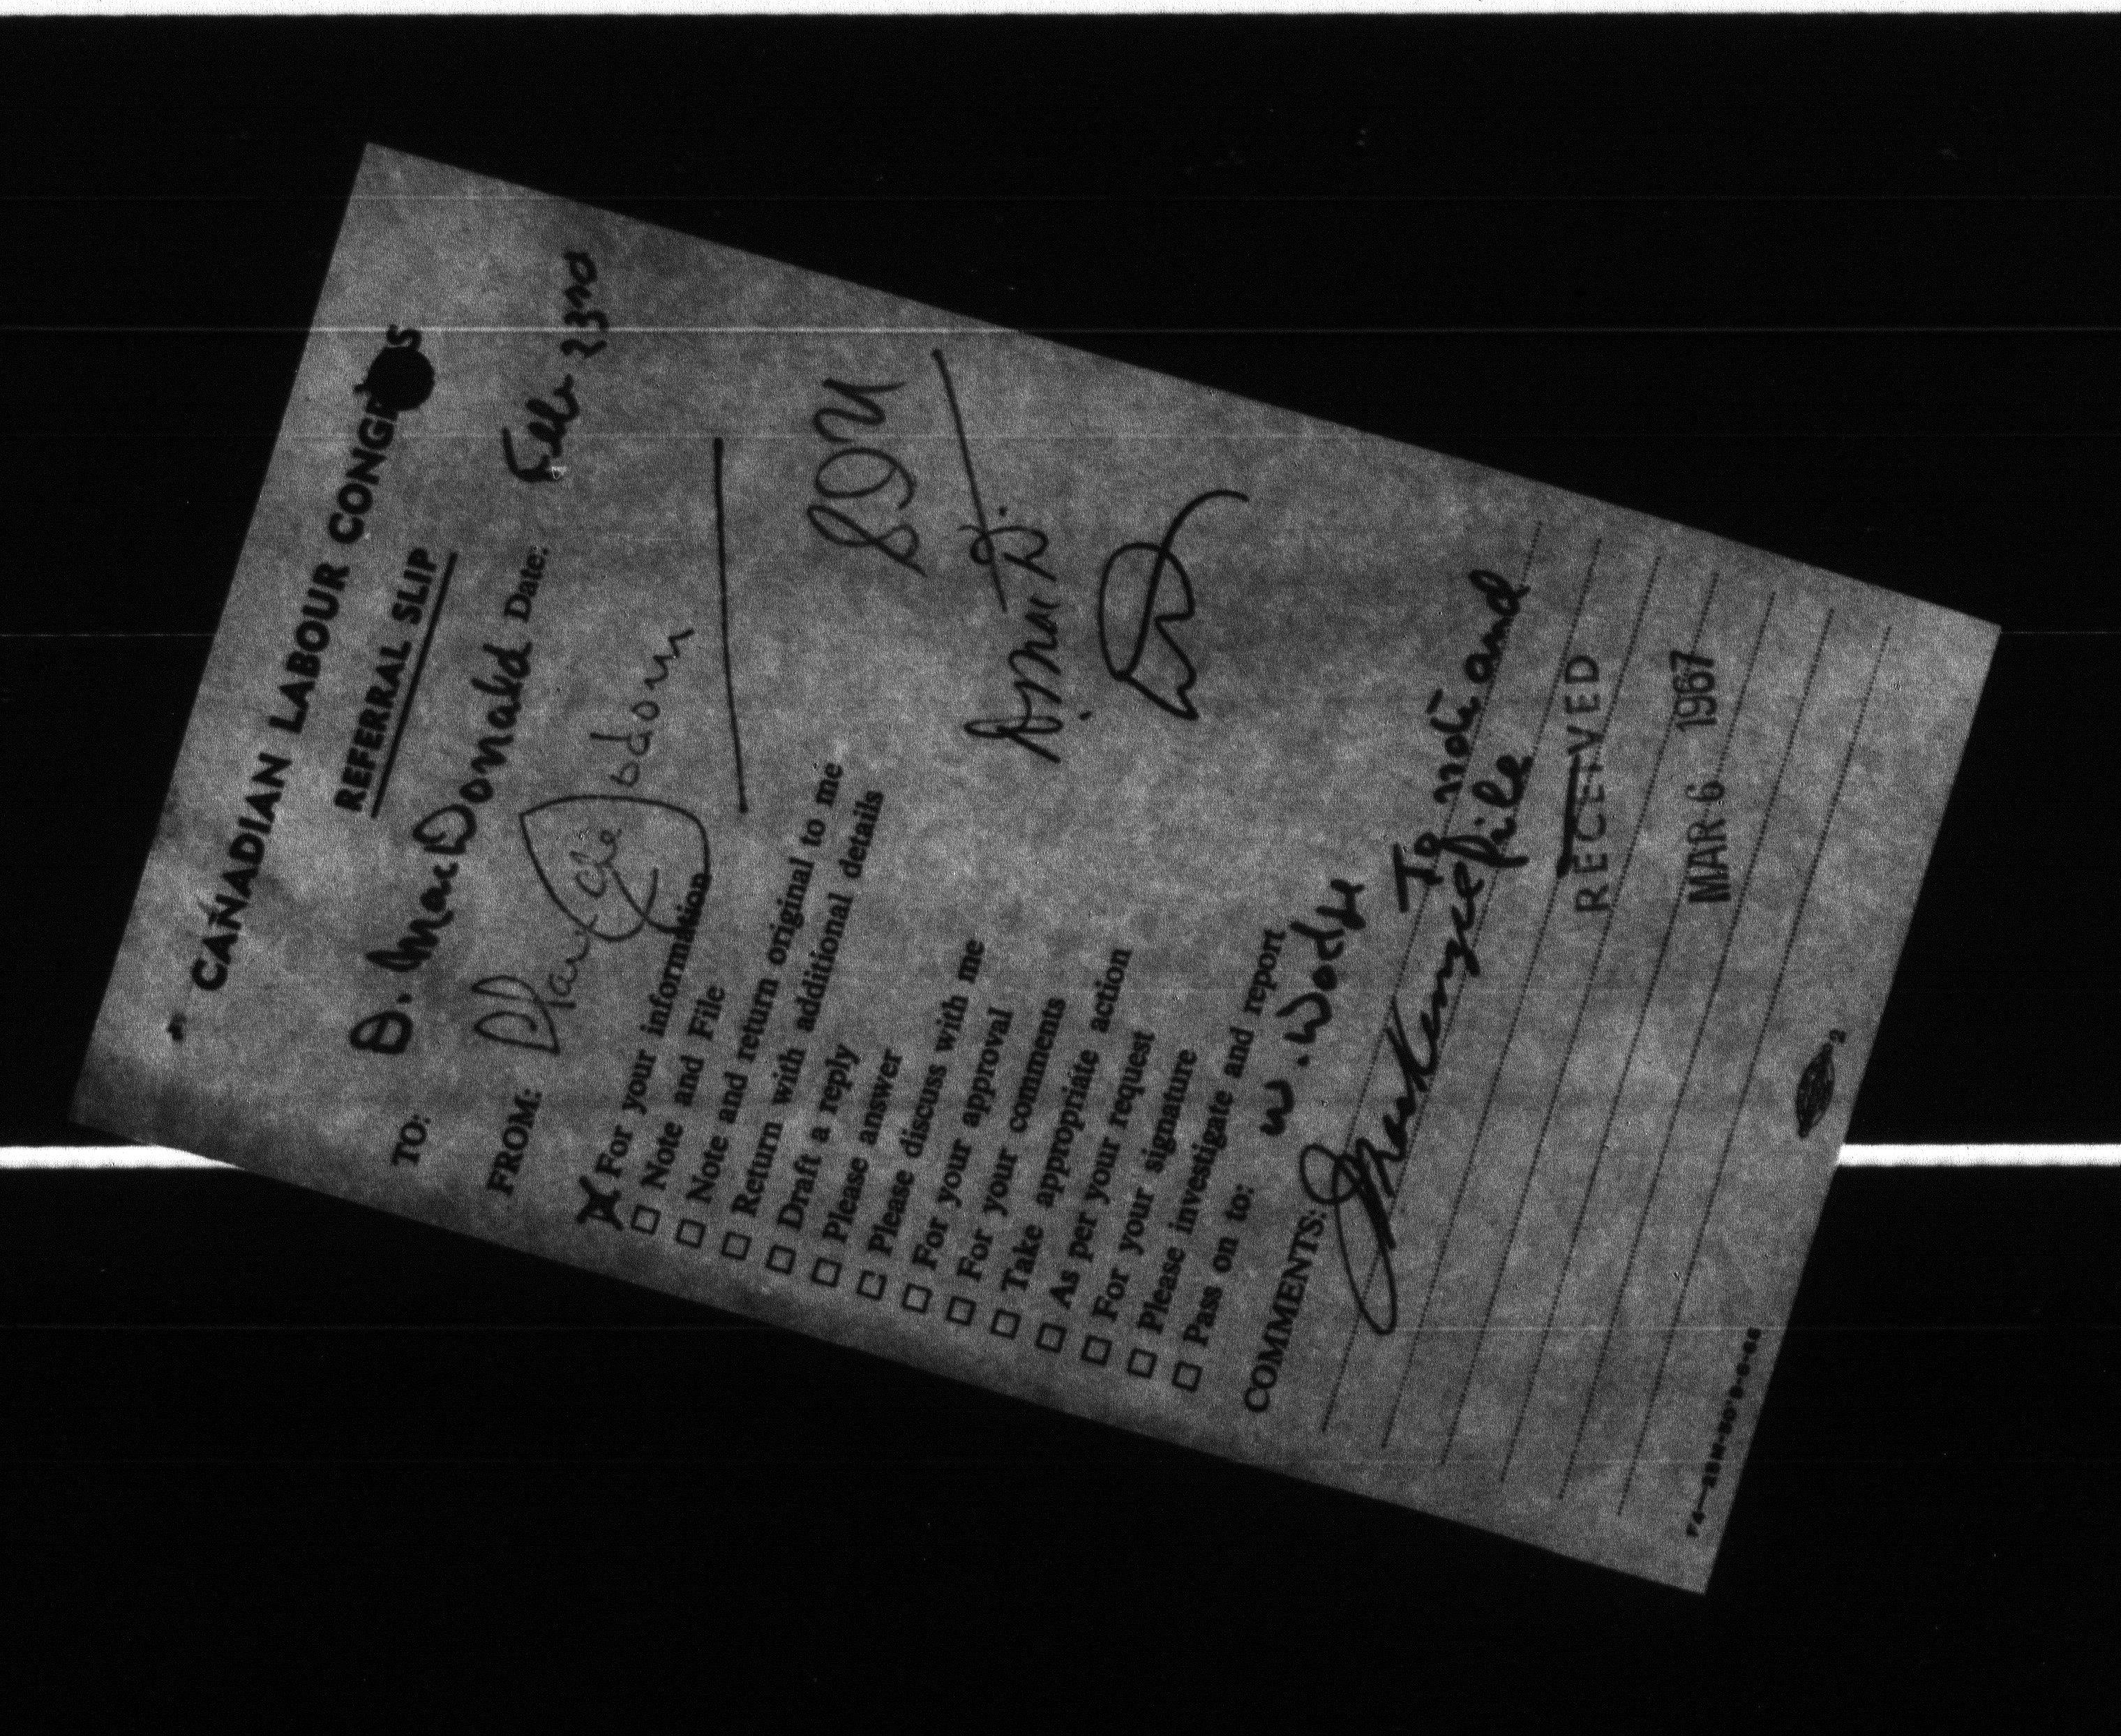 CANADIAN LABOUR CONGRESS
REFERRAL SLIP
TO: D. MacDonald Date: Feb 23rd
FROM:
☒ For your information
☐ Note and File
☐ Note and return original to me
☐ Return with additional details
☐ Draft a reply
☐ Please answer
☐ Please discuss with me
☐ For your approval
☐ For your comments
☐ Take appropriate action
☐ As per your request
☐ For your signature
☐ Please investigate and report
☐ Pass on to: W. Dodge
COMMENTS: To note and
file
RECEIVED
MAR 6 1967
2